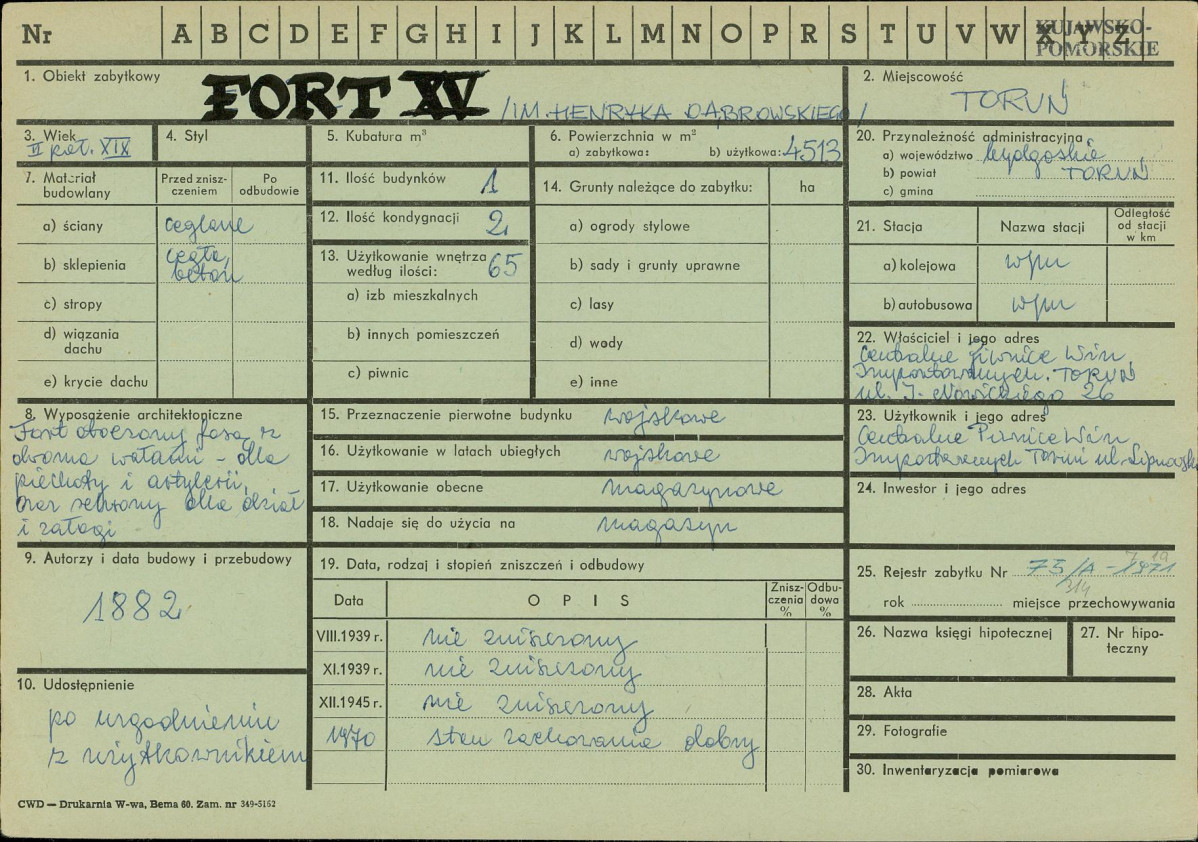 Nr A B C D E F G H I J K L M N O P R S T U V W X Y Z
KUJAWSKO-
POMORSKIE
1. Obiekt zabytkowy
FORT XV /IM. HENRYKA DĄBROWSKIEGO/
2. Miejscowość
TORUŃ
3. Wiek
II poł. XIX
4. Styl
5. Kubatura m³
6. Powierzchnia w m²
a) zabytkowa: b) użytkowa: 4513
20. Przynależność administracyjna
a) województwo bydgoskie
b) powiat TORUŃ
c) gmina
7. Materiał
budowlany
Przed znisz-
czeniem
Po
odbudowie
a) ściany ceglane
b) sklepienia cegła,
beton
c) stropy
d) wiązania
dachu
e) krycie dachu
11. Ilość budynków 1
12. Ilość kondygnacji 2
13. Użytkowanie wnętrza
według ilości: 65
a) izb mieszkalnych
b) innych pomieszczeń
c) piwnic
14. Grunty należące do zabytku: ha
a) ogrody stylowe
b) sady i grunty uprawne
c) lasy
d) wody
e) inne
21. Stacja Nazwa stacji
Odległość
od stacji
w km
a) kolejowa w/m
b) autobusowa w/m
22. Właściciel i jego adres
Centralne Piwnice Win
Importowanych. TORUŃ
ul. J. Nowickiego 26
8. Wyposażenie architektoniczne
Fort otoczony fosą z
dwoma wałami – dla
piechoty i artylerii,
oraz schrony dla dział
i załogi
15. Przeznaczenie pierwotne budynku wojskowe
16. Użytkowanie w latach ubiegłych wojskowe
17. Użytkowanie obecne magazynowe
18. Nadaje się do użycia na magazyn
23. Użytkownik i jego adres
Centralne Piwnice Win
Importowanych Toruń ul.
24. Inwestor i jego adres
9. Autorzy i data budowy i przebudowy
1882
10. Udostępnienie
po uzgodnieniu
z użytkownikiem
19. Data, rodzaj i stopień zniszczeń i odbudowy
Data O P I S
Znisz-
czenia
%
Odbu-
dowa
%
VIII.1939 r. nie zniszczony
XI.1939 r. nie zniszczony
XII.1945 r. nie zniszczony
1970 stan zachowania dobry
25. Rejestr zabytku Nr 73/A – 1971
314
rok miejsce przechowywania
26. Nazwa księgi hipotecznej
27. Nr hipo-
teczny
28. Akta
29. Fotografie
30. Inwentaryzacja pomiarowa
CWD — Drukarnia W-wa, Bema 60. Zam. nr 349-5162